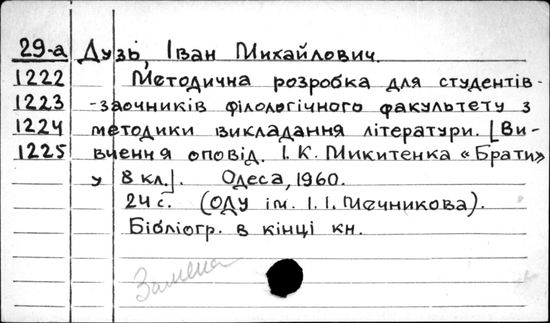 29-а Дузь, Іван Михайлович.
1222 Методична розробка для студентів-
1223 -заочників філологічного факультету з
1224 методики викладання літератури. [Ви-
1225 вчення оповід. І. К. Микитенка «Брати»
у 8 кл.]. Одеса, 1960.
24 с. (ОДУ ім. І. І. Мечникова).
Бібліогр. в кінці кн.
Замена